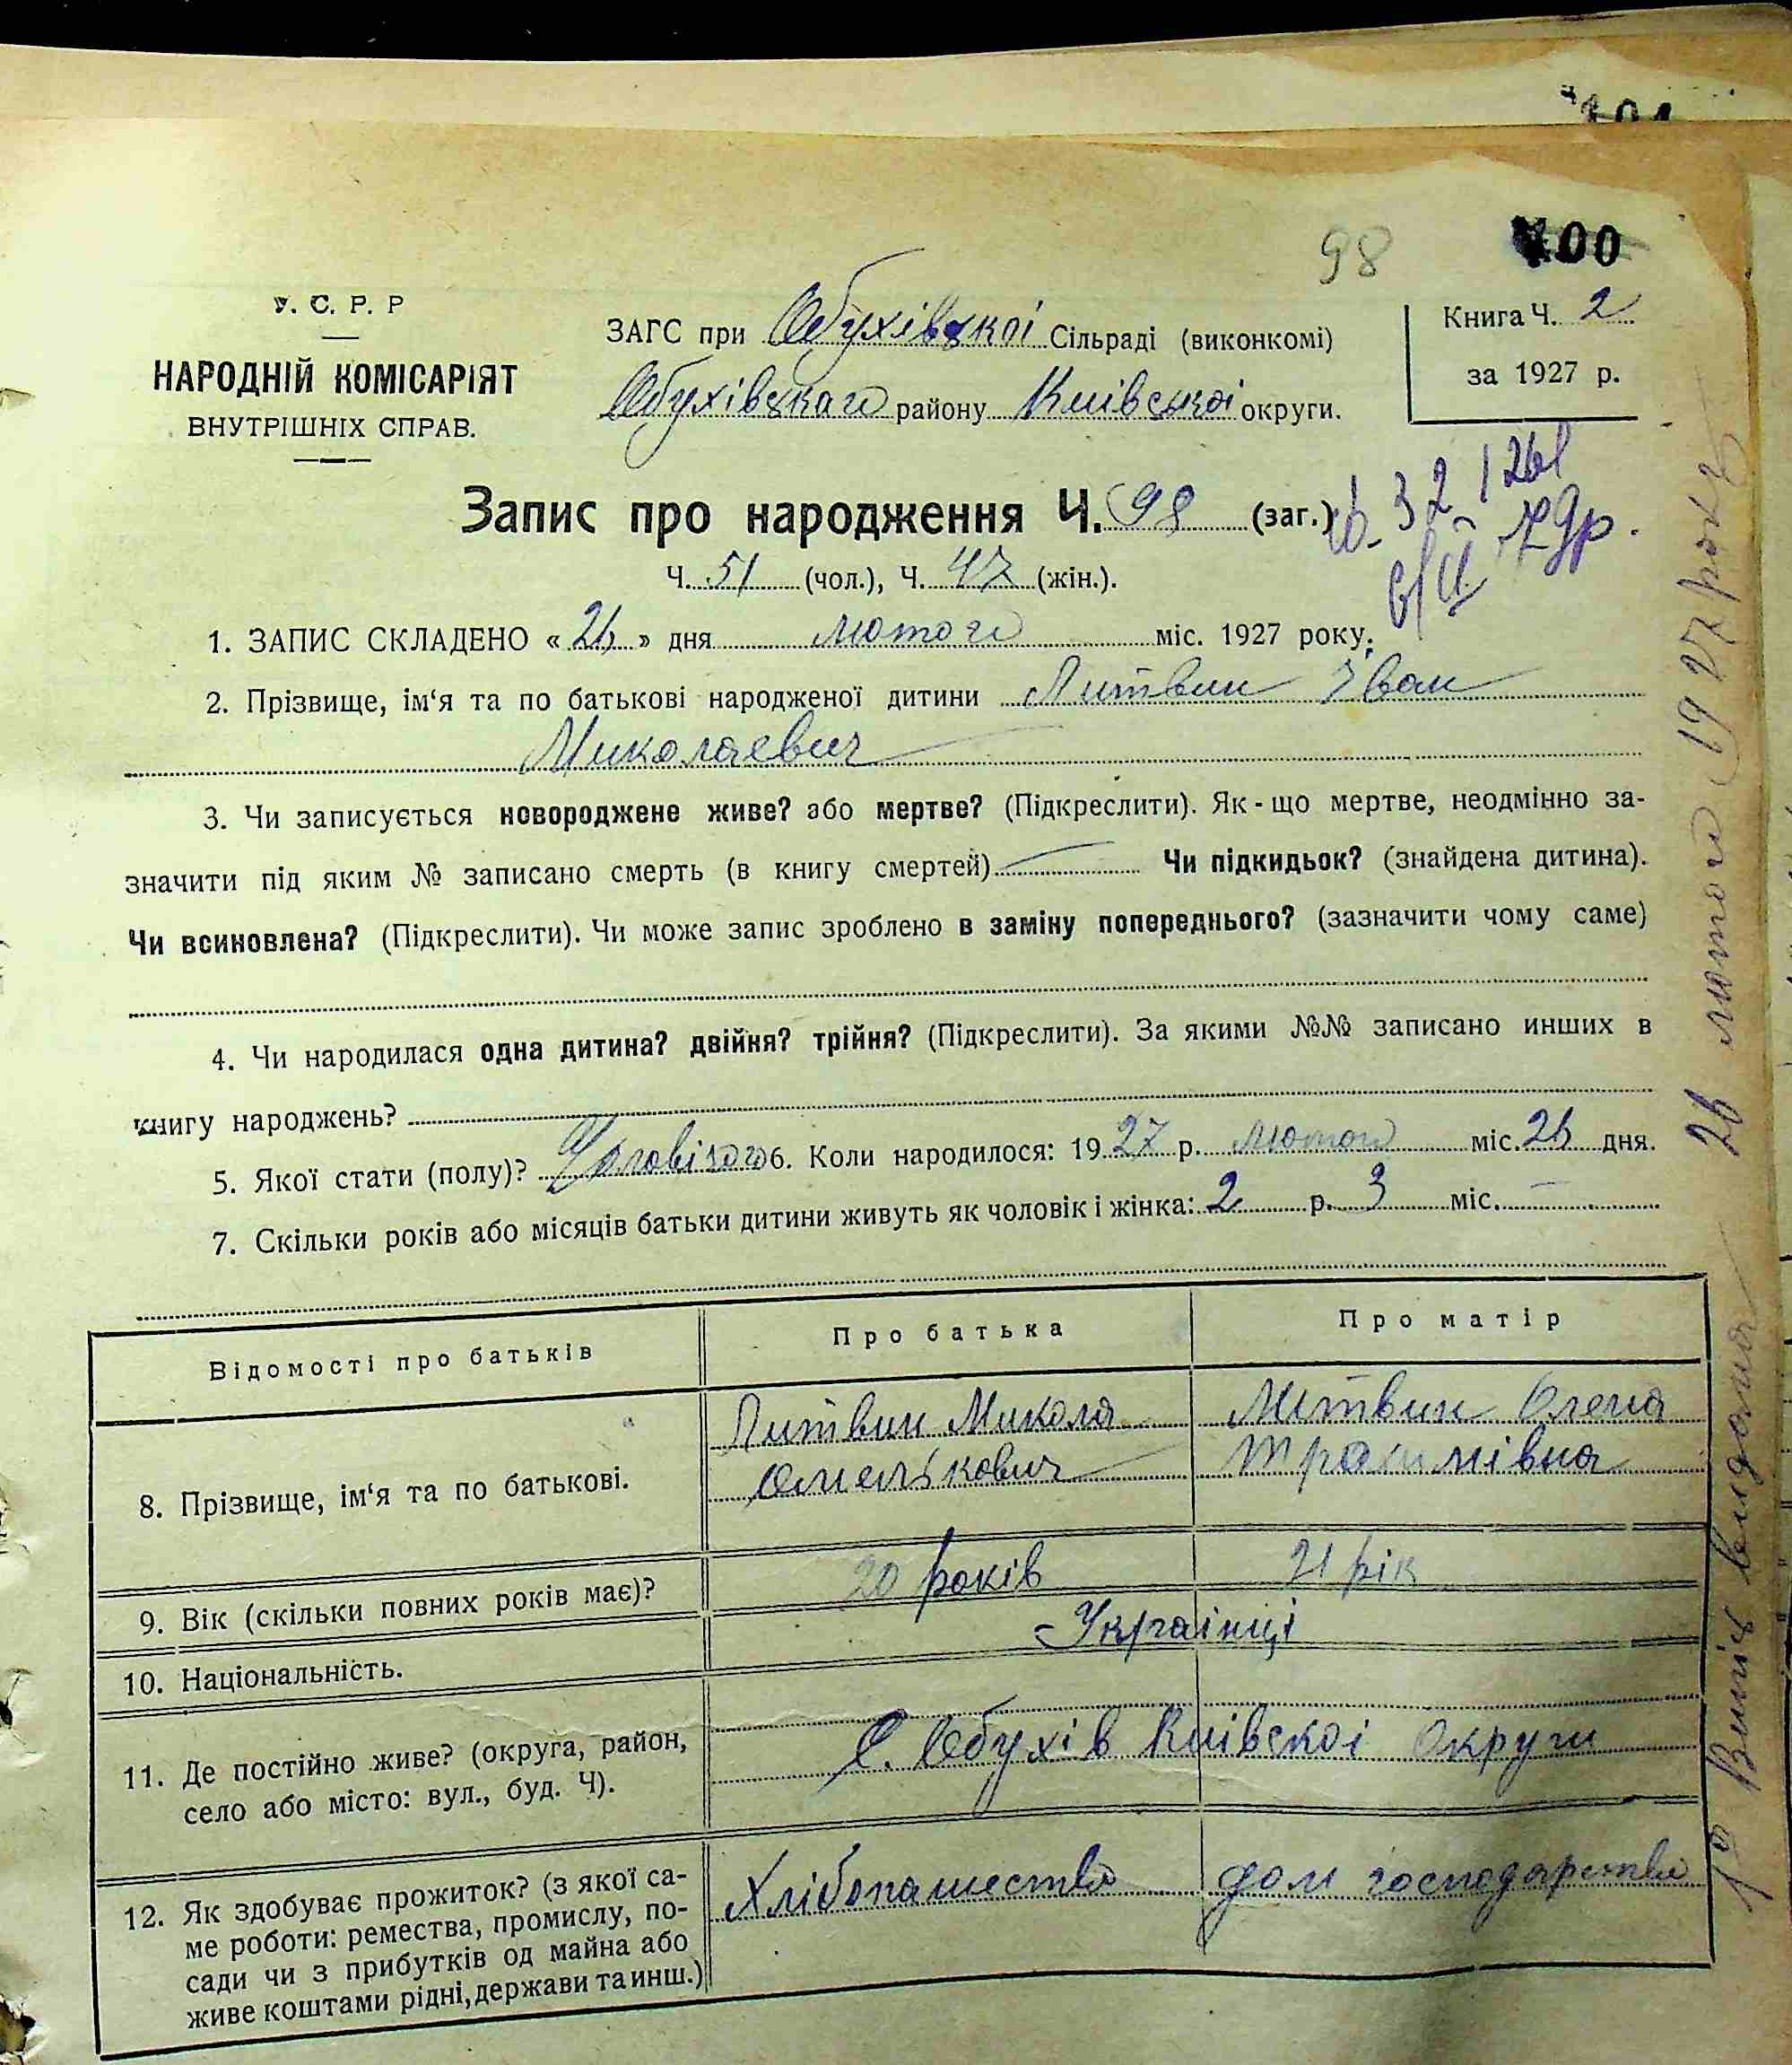 98
100
У. С. Р. Р
НАРОДНІЙ КОМІСАРІЯТ
ВНУТРІШНІХ СПРАВ.
ЗАГС при Обухівскої Сільраді (виконкомі)
Обухівскаго району Київської округи.
Книга Ч. 2
за 1927 р.
Запис про народження Ч. 98 (заг.)
Ч. 51 (чол.), Ч. 47 (жін.).
1. ЗАПИС СКЛАДЕНО « 26 » дня лютого міс. 1927 року.
2. Прізвище, ім‘я та по батькові народженої дитини Литвин Іван
Миколаевич
3. Чи записується новороджене живе? або мертве? (Підкреслити). Як-що мертве, неодмінно за-
значити під яким № записано смерть (в книгу смертей) Чи підкидьок? (знайдена дитина).
Чи всиновлена? (Підкреслити). Чи може запис зроблено в заміну попереднього? (зазначити чому саме)
4. Чи народилася одна дитина? двійня? трійня? (Підкреслити). За якими №№ записано инших в
книгу народжень?
5. Якої стати (полу)? Чоловічого 6. Коли народилося: 1927 р. лютого міс. 26 дня.
7. Скільки років або місяців батьки дитини живуть як чоловік і жінка: 2 р. 3 міс.
Відомості про батьків Про батька Про матір
8. Прізвище, ім‘я та по батькові. Литвин Микола Литвин Олена
Омелькович
9. Вік (скільки повних років має)? 20 років 21 рік
10. Національність. Українці
11. Де постійно живе? (округа, район,
село або місто: вул., буд. Ч).
С. Обухів Киівскоі Округи
12. Як здобуває прожиток? (з якої са-
ме роботи: ремества, промислу, по-
сади чи з прибутків од майна або
живе коштами рідні, держави та инш.)
Хлібопашество дом господарство
26 лютого 1927 року